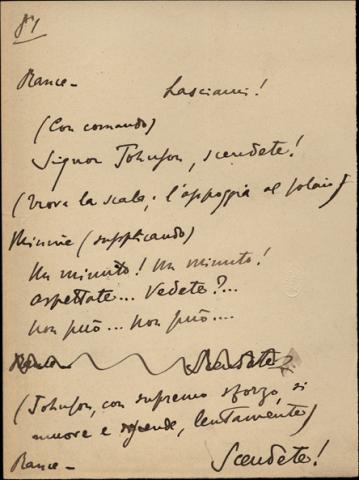 Rance - Lasciami!
(Con comando)
Signor Johnson, scendete!
(trova la scala; l'appoggia al solaio)
Minnie (supplicando)
Un minuto! Un minuto!
aspettate... Vedete?...
non può... non può....
Rance Scendete
(Johnson, con supremo sforzo, si
muove e scende, lentamente)
Rance - Scendete!